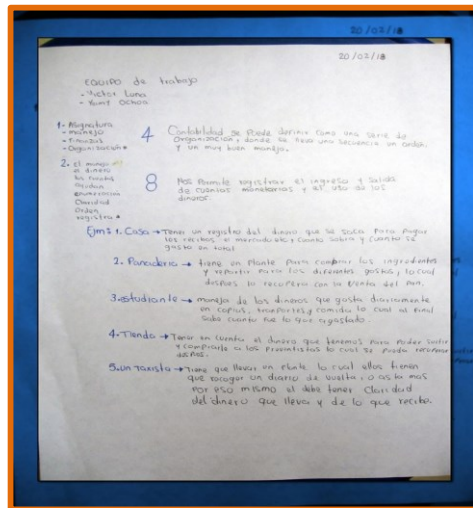 20/02/18
20/02/18
EQUIPO de trabajo
- Victor Luna
- Yeimy Ochoa
1- Asignatura
- manejo
- Finanzas
- Organización
4 Contabilidad se puede definir como una serie de
Organización, donde se lleva una secuencia un orden.
Y un muy buen manejo.
2. el manejo
el dinero
las cuentas
ayudan
enumeración
Claridad
Orden
registro
8 Nos Permite registrar el ingreso y salida
de cuentas monetarias y el uso de los
dineros.
Ejm: 1. Casa → Tener un registro del dinero que se saca Para Pagar
los recibos el mercado etc y Cuanto sobra y cuanto se
gasto en total
2. Panaderia → tiene un Plante Para comprar los ingredientes
y repartir Para los diferentes gastos, lo cual
despues lo recupera con la venta del Pan.
3. estudiante → manejo de los dineros que gasta diariamente
en copias, trasportes, comida lo cual al final
sabe cuanto fue lo que a gastado.
4. Tienda → Tener en cuenta el dinero que tenemos Para Poder surtir
y comprarle a los Proveedores lo cual se pueda recuperar
despues.
5. un Taxista → Tiene que llevar un Plante lo cual ellos tienen
que recoger un diario de vuelta, o asta mas
Por eso mismo el debe tener Claridad
del dinero que lleva y de lo que recibe.